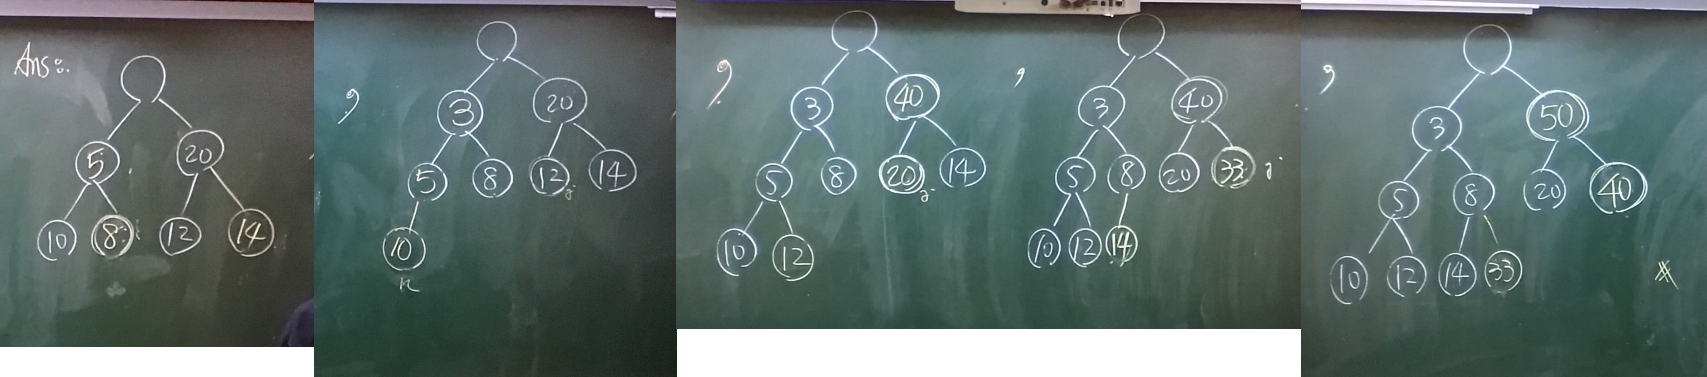 Ans:
5 20
10 8 12 14
,
3 20
5 8 12 j 14
10
n
,
3 40
5 8 20 j 14
10 12
,
3 40
5 8 20 33 j
10 12 14
,
3 50
5 8 20 40
10 12 14 33